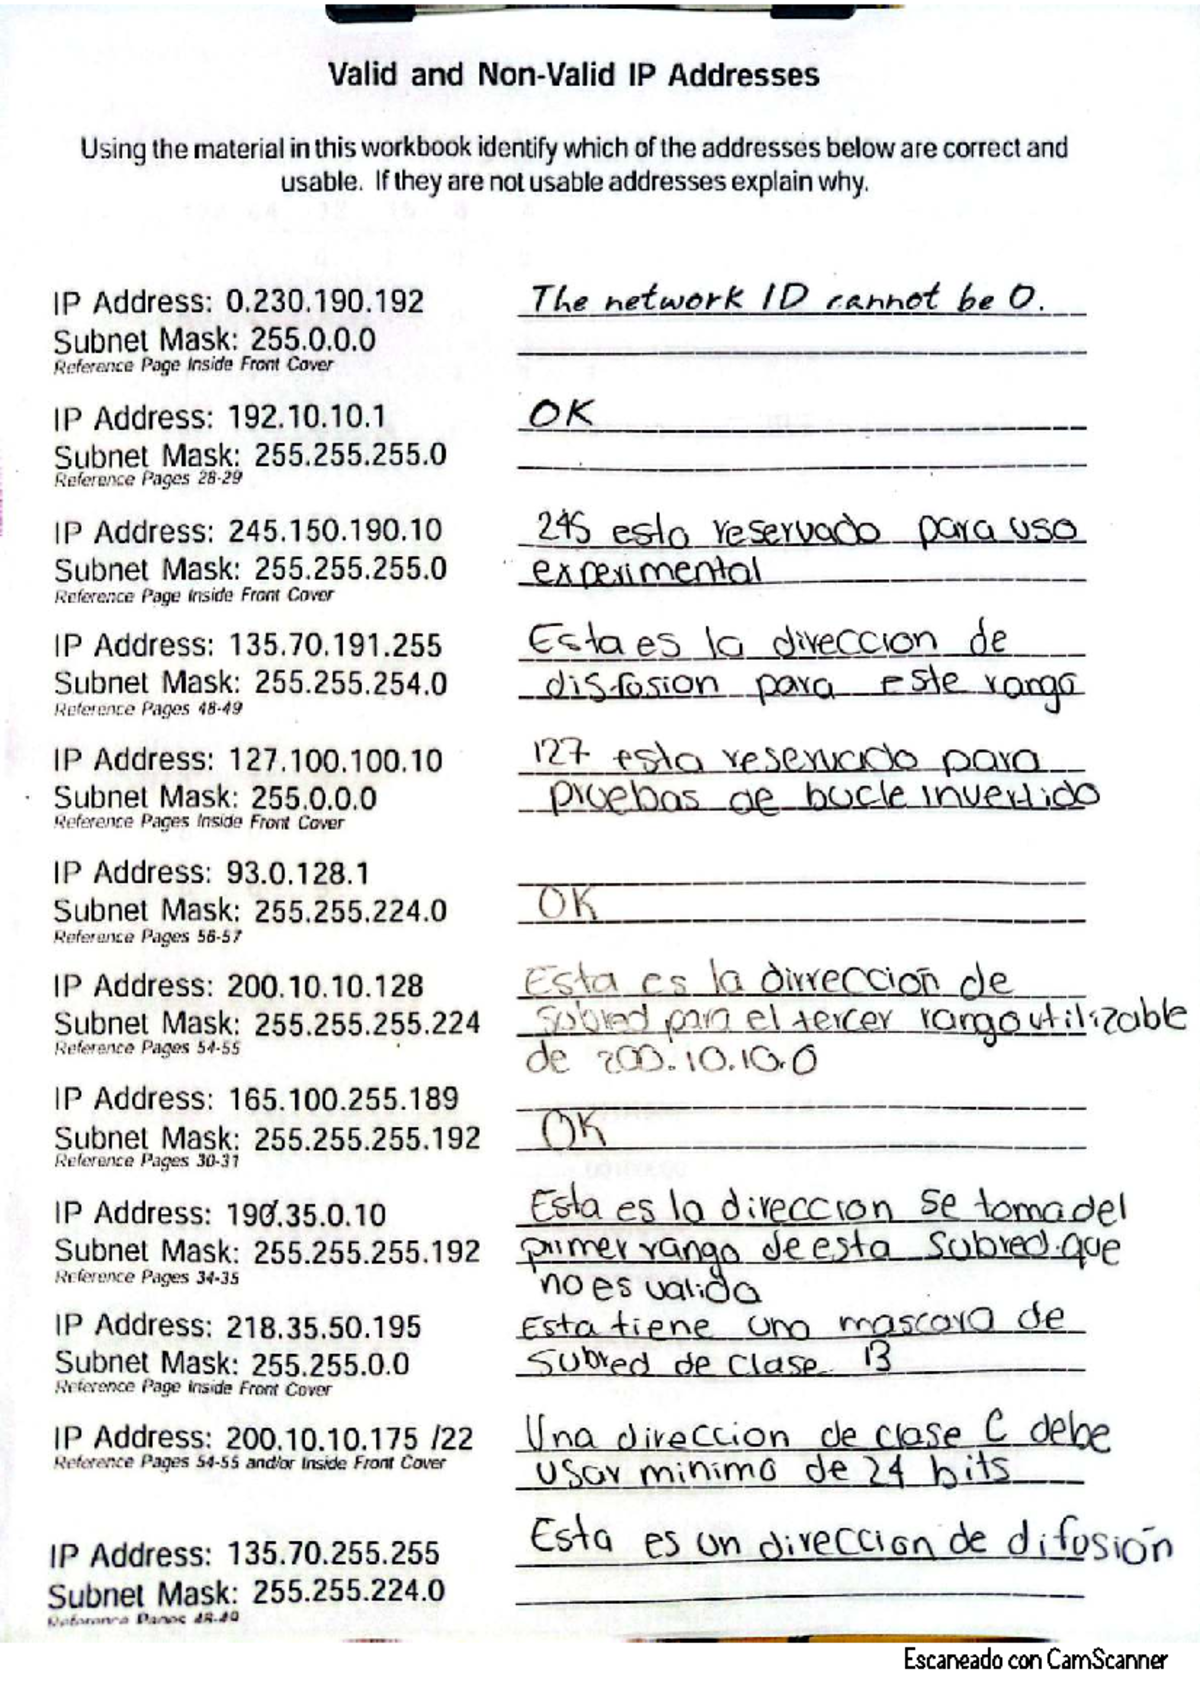 Valid and Non-Valid IP Addresses
Using the material in this workbook identify which of the addresses below are correct and
usable. If they are not usable addresses explain why.
IP Address: 0.230.190.192
The network ID cannot be 0.
Subnet Mask: 255.0.0.0
Reference Page Inside Front Cover
IP Address: 192.10.10.1
OK
Subnet Mask: 255.255.255.0
Reference Pages 28-29
IP Address: 245.150.190.10
245 esta reservado para uso
Subnet Mask: 255.255.255.0
experimental
Reference Page Inside Front Cover
IP Address: 135.70.191.255
Esta es la direccion de
Subnet Mask: 255.255.254.0
disfusion para este rango
Reference Pages 48-49
IP Address: 127.100.100.10
127 esta reservado para
Subnet Mask: 255.0.0.0
pruebas de bucle invertido
Reference Pages Inside Front Cover
IP Address: 93.0.128.1
Subnet Mask: 255.255.224.0
OK
Reference Pages 56-57
IP Address: 200.10.10.128
Esta es la dirreccion de
Subnet Mask: 255.255.255.224
Subred para el tercer rango utilizable
Reference Pages 54-55
de 200.10.10.0
IP Address: 165.100.255.189
Subnet Mask: 255.255.255.192
OK
Reference Pages 30-31
IP Address: 190.35.0.10
Esta es la direccion se toma del
Subnet Mask: 255.255.255.192
primer rango de esta Subred que
Reference Pages 34-35
no es valida
IP Address: 218.35.50.195
Esta tiene una mascara de
Subnet Mask: 255.255.0.0
Subred de clase B
Reference Page Inside Front Cover
IP Address: 200.10.10.175 /22
Una direccion de clase C debe
Reference Pages 54-55 and/or Inside Front Cover
usar minimo de 24 bits
IP Address: 135.70.255.255
Esta es un direccion de difusión
Subnet Mask: 255.255.224.0
Reference Pages 48-49
Escaneado con CamScanner